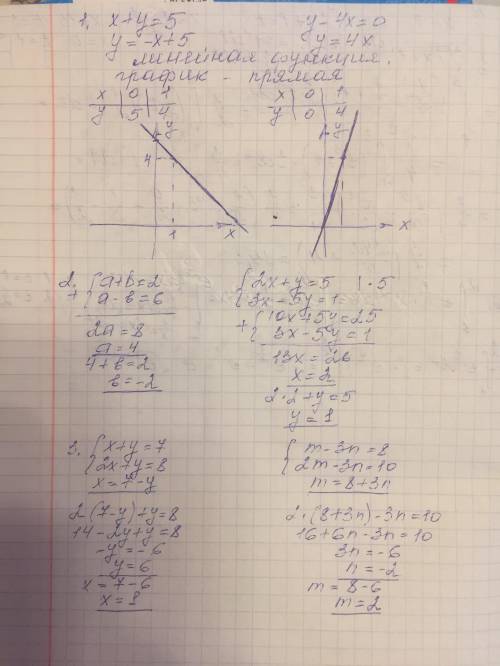 1. x+y=5
y=-x+5
y-4x=0
y=4x
линейная функция.
график - прямая
x | 0 | 1
y | 5 | 4
x | 0 | 1
y | 0 | 4
y
4
1
x
y
x
2. + { a+b=2
a-b=6
2a=8
a=4
4+b=2
b=-2
{ 2x+y=5 | ·5
3x-5y=1
+ { 10x+5y=25
3x-5y=1
13x=26
x=2
2·2+y=5
y=1
3. { x+y=7
2x+y=8
x=7-y
2(7-y)+y=8
14-2y+y=8
-y=-6
y=6
x=7-6
x=1
{ m-3n=8
2m-3n=10
m=8+3n
2·(8+3n)-3n=10
16+6n-3n=10
3n=-6
n=-2
m=8-6
m=2